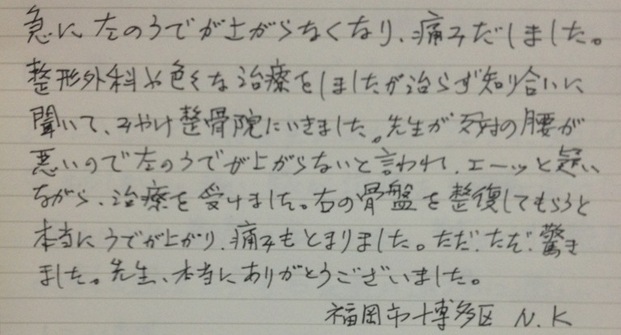 急に左のうでが上がらなくなり、痛みだしました。
整形外科や色々な治療をしましたが治らず知り合いに
聞いて、みやけ整骨院にいきました。先生が反対の腰が
悪いので左のうでが上がらないと言われ、エーッと疑い
ながら、治療を受けました。右の骨盤を整復してもらうと
本当にうでが上がり、痛みもとまりました。ただ、ただ、驚き
ました。先生、本当にありがとうございました。
福岡市博多区 N.K